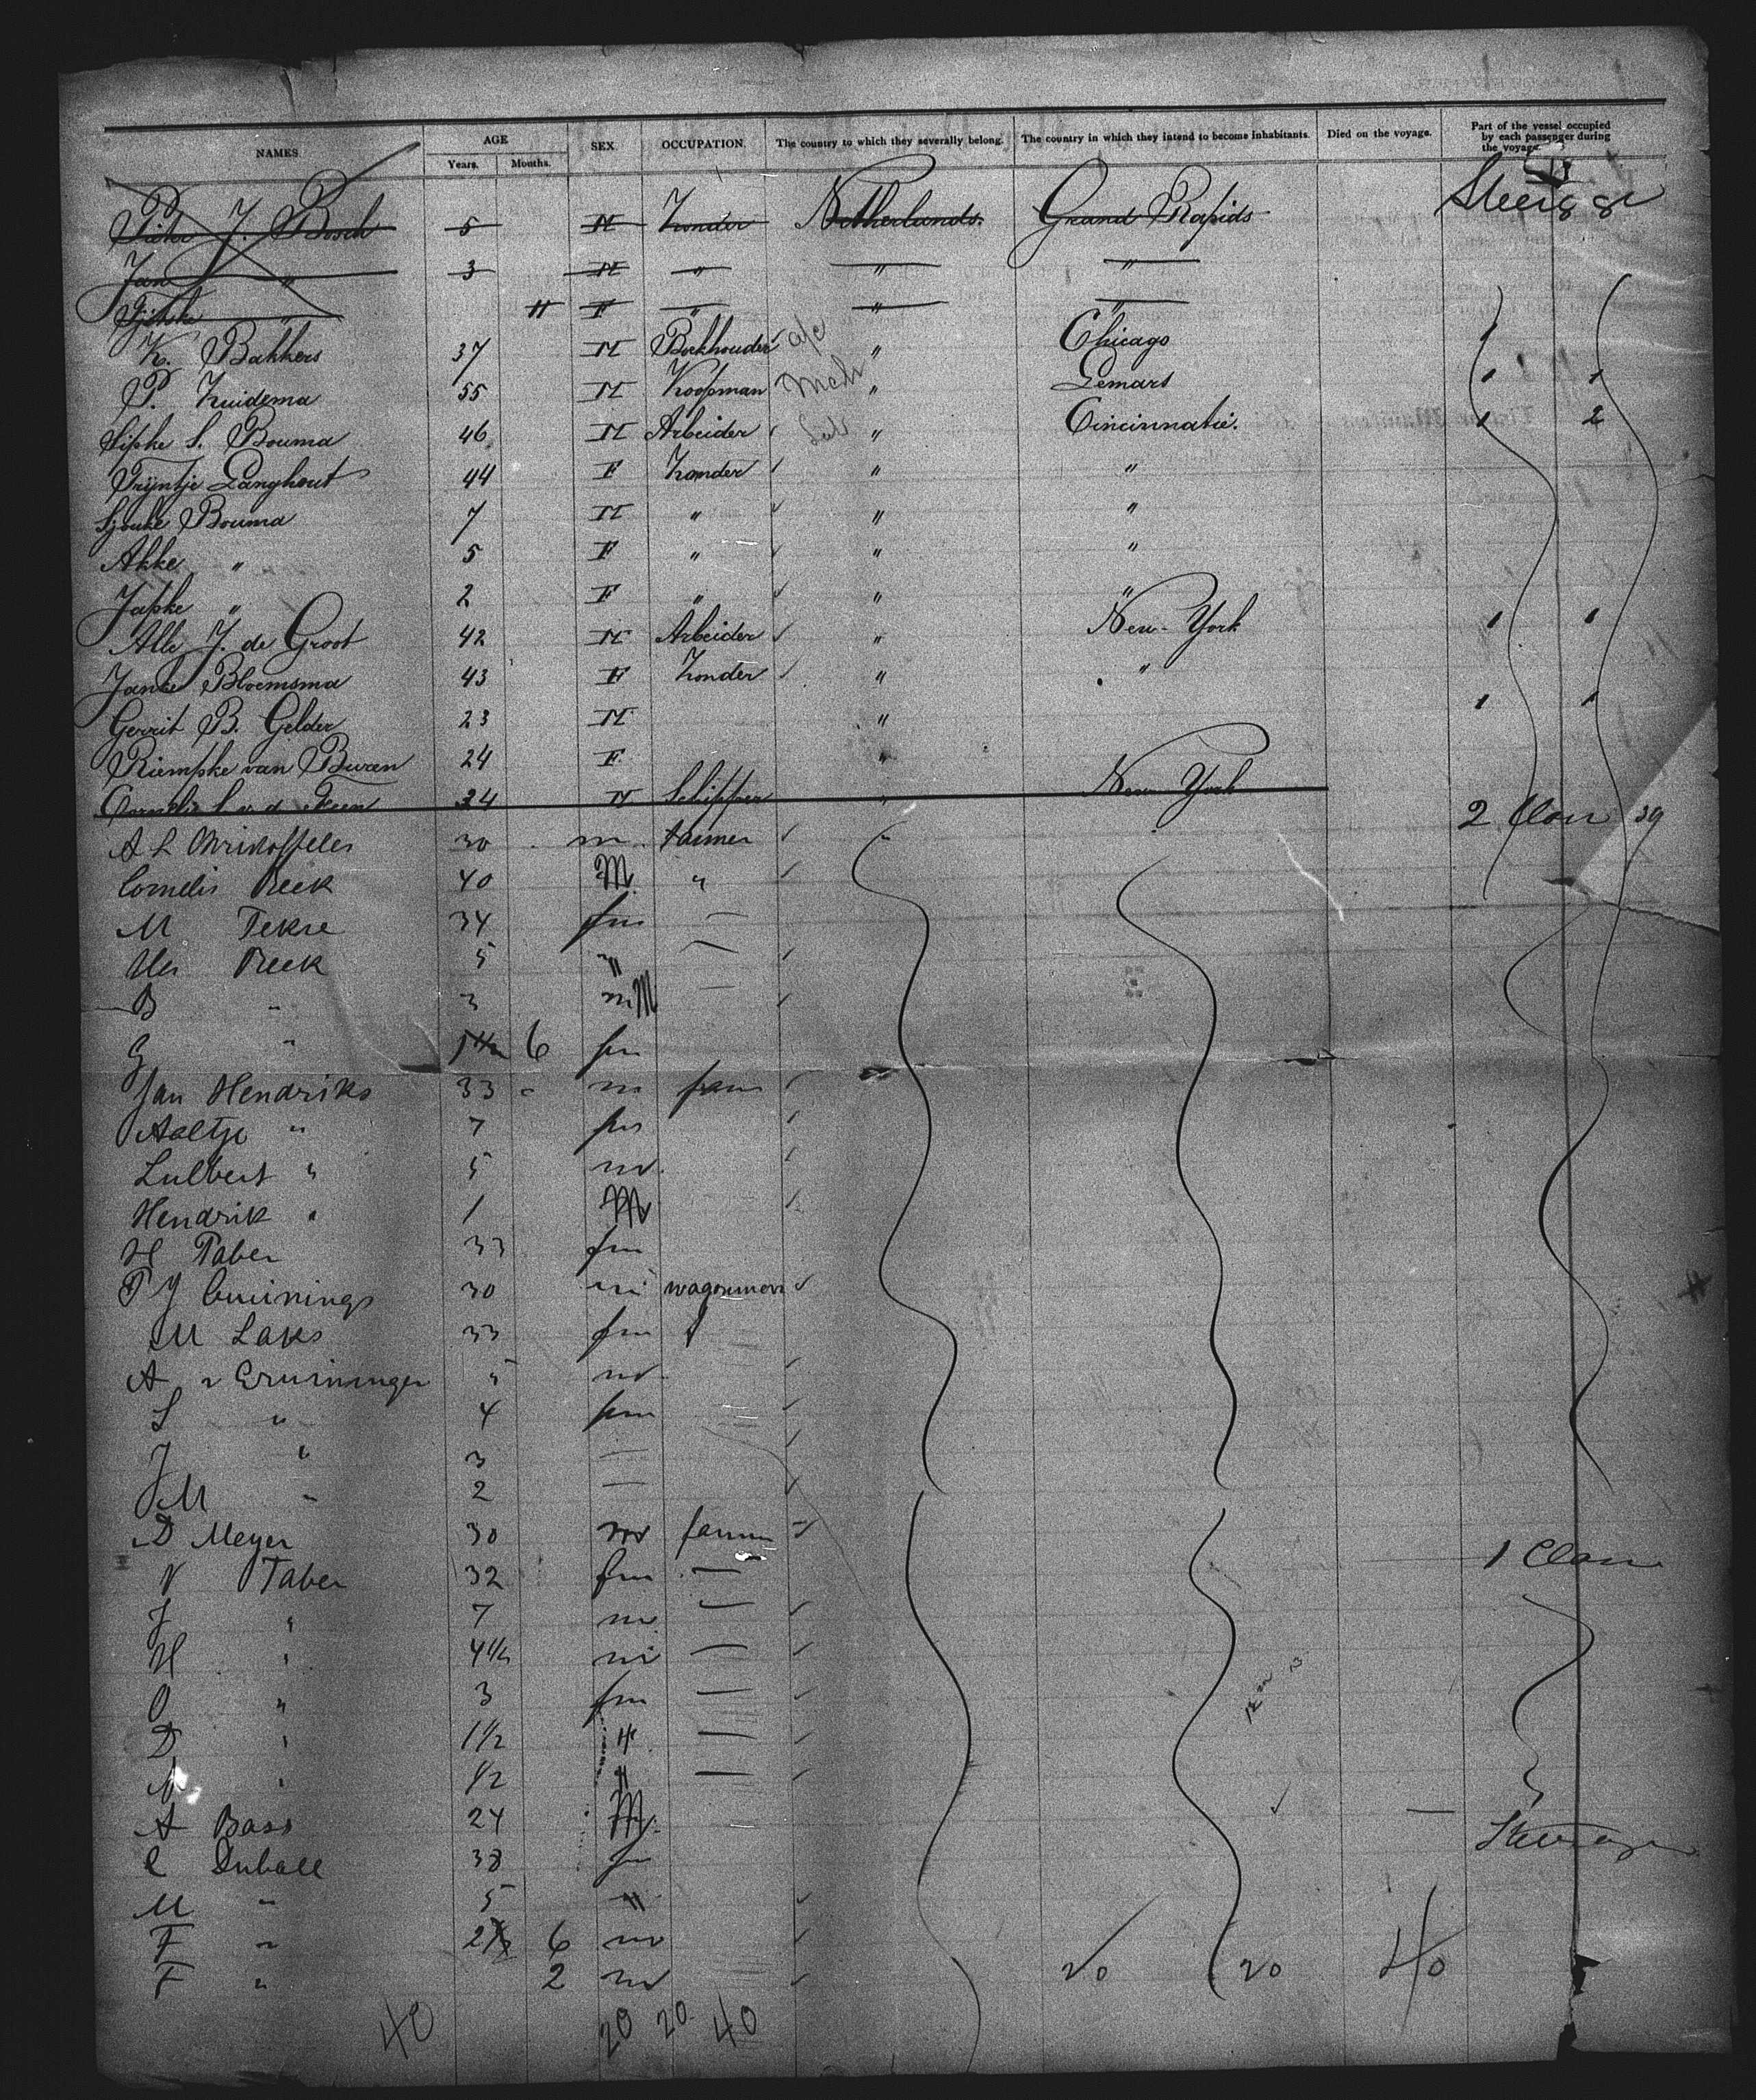 NAMES AGE Years. Months. SEX. OCCUPATION. The country to which they severally belong. The country in which they intend to become inhabitants. Died on the voyage. Part of the vessel occupied by each passenger during the voyage.
Pieter J. Bosch 5 M Zonder Netherlands. Grand Rapids
Jan " 3 M " " "
" 11 F " " "
K. Bakkers 37 M Boekhouder " Chicago
P. Zuidema 55 M Koopman Mch " Lemars 1 1
Sipke S. Bouma 46 M Arbeider " Cincinnatie. 1 2
Trijntje Langhout 44 F Zonder " "
Sjouke Bouma 7 M " " "
Akke " 5 F " " "
Japke " 2 F " " "
Alle J. de Groot 42 M Arbeider " New-York 1 1
Janke Bloemsma 43 F Zonder " "
Gerrit B. Gelder 23 M " 1 1
Riempke van Buren 24 F "
Cornelis S. v. d. Veen 24 M Schipper " New York
A L 30 m farmer " 2 Class 39
Cornelis Reek 40 M "
M Tekre 34 fm —
Reek 5 "
B " 3 m M —
G " 1 1/2 6 fm
Jan Hendriks 33 m farm
Aaltje " 7 fm
Lulbert " 5 m
Hendrik " 1 M
H Taber 33 fm
P J 30 m wagonman
M Laks 33 fm
A v Gruininger 5 m
S " 4 fm
J " 3 —
M " 2 —
D Meyer 30 m farm 1 Class
V Taber 32 fm —
J " 7 m —
H " 4 1/2 m —
O " 3 fm —
D " 1 1/2 " —
N " 1/2 " —
A Bass 24 M — Steerage
C Duball 38 fm
M " 5 "
F " 2 1/2 6 m
F " 2 m 20 20 40
40 20 20 40